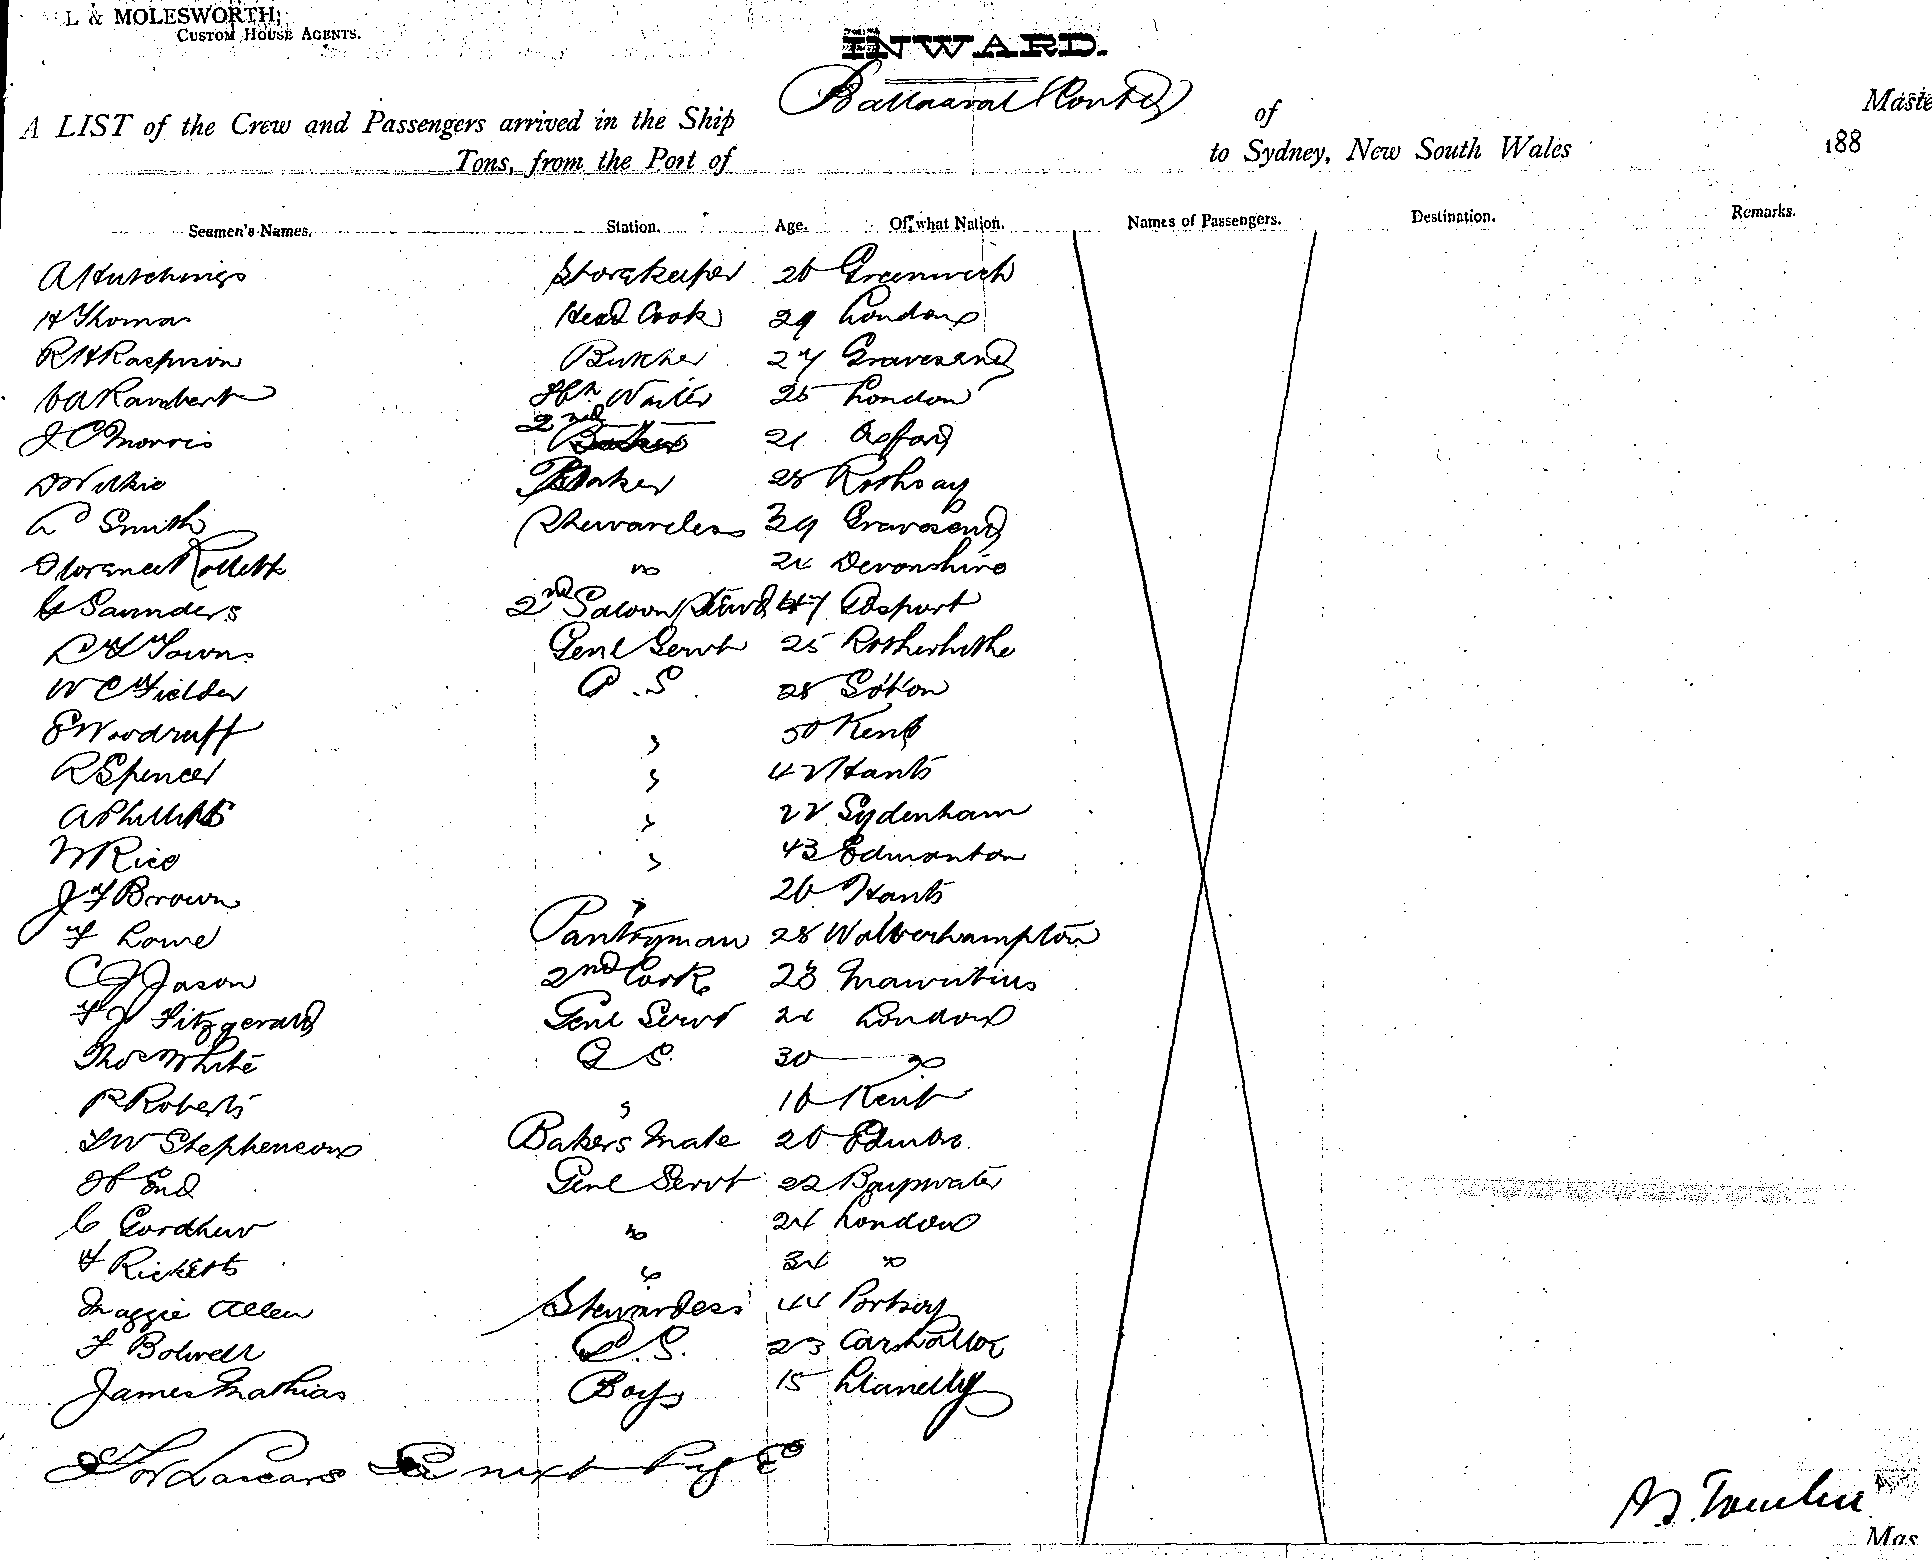 L & MOLESWORTH;
CUSTOM HOUSE AGENTS.
INWARD.
A LIST of the Crew and Passengers arrived in the Ship Ballaarat (Contd) of Maste
Tons, from the Port of to Sydney, New South Wales 188
Seamen's Names. Station. Age. Of what Nation. Names of Passengers. Destination. Remarks.
A Hutchings Storekeeper 26 Greenwich
H Thomas Head Cook 29 London
R H Raspison Butcher 27 Gravesend
Waiter 25 London
J C Morris 2nd 21 Oxford
D Wilkie Baker 28 Rothsay
Smith Stewardess 39 Gravesend
Florence Kollett " 24 Devonshire
G Saunders 2nd Saloon Stwd 47 Gosport
Towns Genl Servt 25 Rotherhithe
W C Fielder G.S. 28 Soton
E Woodruff " 50 Kent
R Spencer " 42 Hants
A Phillips " 22 Sydenham
W Rice " 43 Edmonton
J F Brown " 26 Hants
F Lowe Pantryman 28 Wolverhampton
C J Jason 2nd Cook 28 Mauritius
F J Fitzgerald Genl Servt 21 London
Thos White G S. 30 "
R Roberts " 16 Kent
Stephenson Bakers Mate 26 Edinbro
H End Genl Servt 22 Bayswater
C Gordhew " 24 London
F Ricketts " 34 "
Maggie Allen Stewardess 44 Portsoy
F Bolwell G.S. 23
James Mathias Boy 15 Llanelly
For Lascars See next Page
Mas